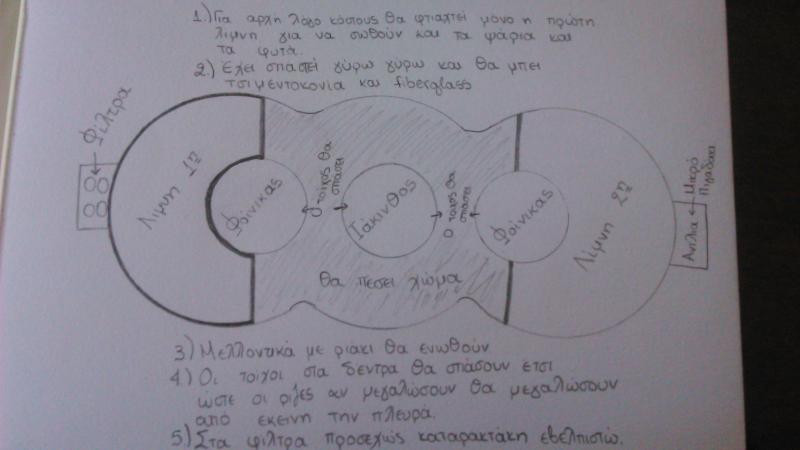 1.) Για αρχή λόγο κόστους θα φτιαχτεί μόνο η πρώτη
λίμνη για να σωθούν και τα ψάρια και
τα φυτά.
2.) Έχει σπαστεί γύρω γύρω και θα μπει
τσιμεντοκονία και fiberglass
Φίλτρα
Λίμνη 1η
Φοίνικας
Ο τοίχος θα
σπάσει
Γιάκινθος
Ο τοίχος θα
σπάσει
Φοίνικας
Λίμνη 2η
Αντλία
Μικρό
Πιγαδάκι
Θα πέσει χώμα
3) Μελλοντικά με ριάκι θα ενωθούν
4) Οι τοίχοι στα δέντρα θα σπάσουν έτσι
ώστε οι ρίζες αν μεγαλώσουν θα μεγαλώσουν
από εκείνη την πλευρά.
5) Στα φίλτρα προσεχώς καταρακτάκη εβελπιστώ.